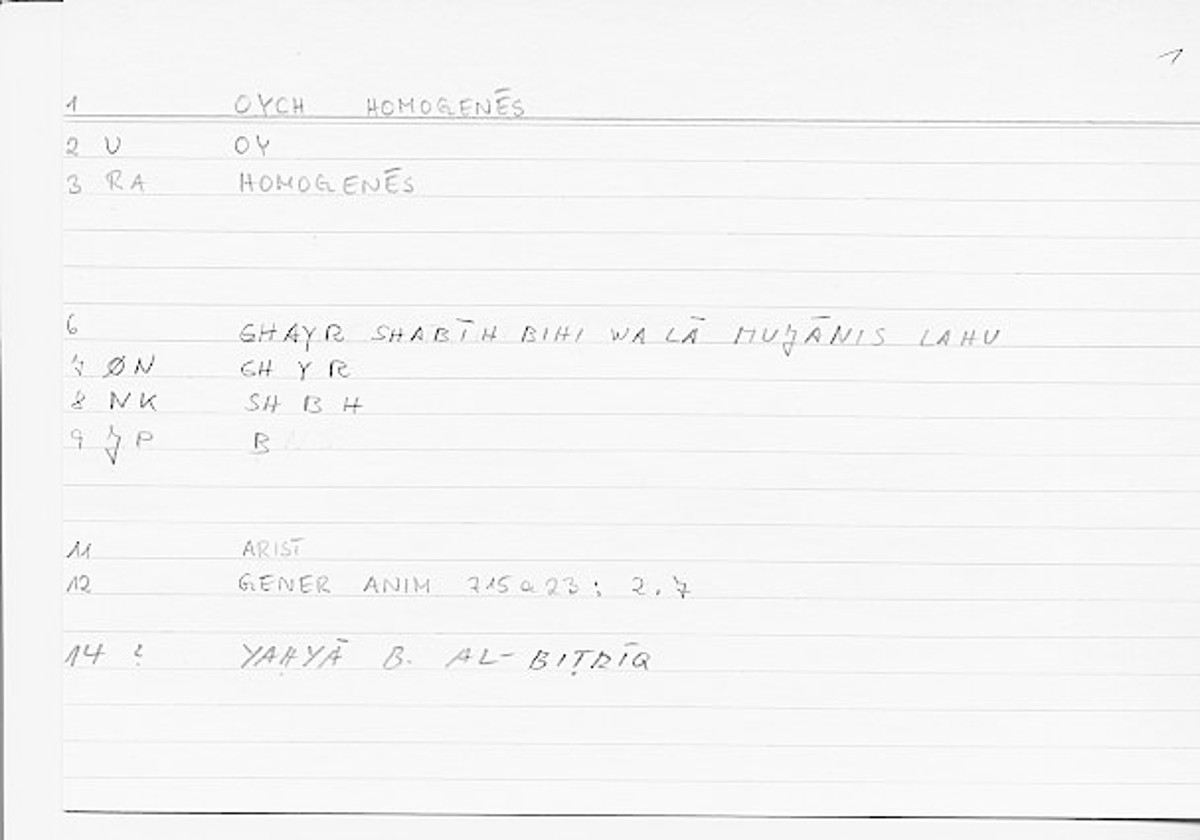 1
1 OYCH HOMOGENĒS
2 U OY
3 RA HOMOGENĒS
6 GHAYR SHABĪH BIHI WA LĀ MUJĀNIS LAHU
7 ØN GH Y R
8 NK SH B H
9 JP B
11 ARIST
12 GENER ANIM 715a23; 2.7
14 ? YAḤYĀ B. AL-BIṬRĪQ